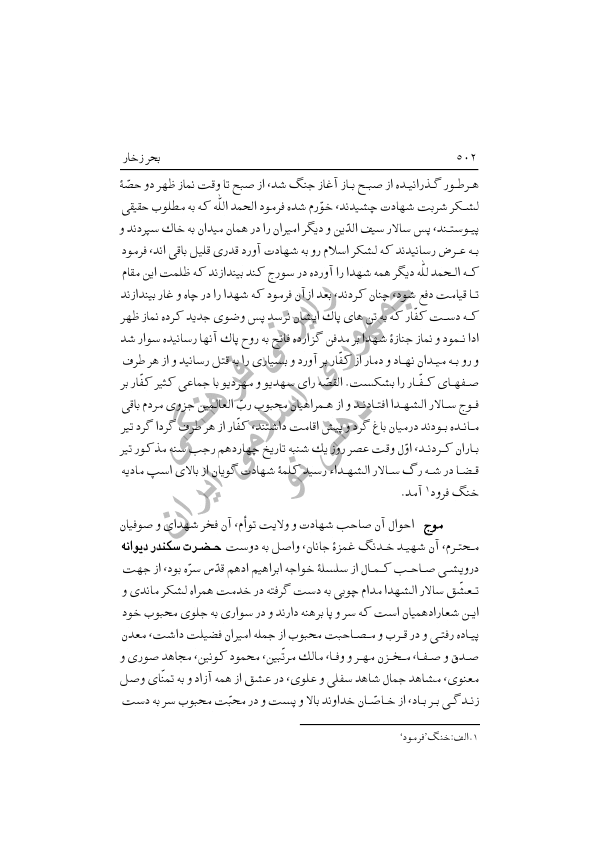 ۵۰۲ بحر زخار
هر طور گذرانیده از صبح باز آغاز جنگ شد، از صبح تا وقت نماز ظهر دو حصّهٔ
لشکر شربت شهادت چشیدند، خوّرم شده فرمود الحمد الله که به مطلوب حقیقی
پیوستند، پس سالار سیف الدّین و دیگر امیران را در همان میدان به خاك سپردند و
به عرض رسانیدند که لشکر اسلام رو به شهادت آورد قدری قلیل باقی اند، فرمود
که الحمد لله دیگر همه شهدا را آورده در سورج کند بیندازند که ظلمت این مقام
تا قیامت دفع شود، چنان کردند، بعد از آن فرمود که شهدا را در چاه و غار بیندازند
که دست کفّار که به تن های پاك ایشان نرسد پس وضوی جدید کرده نماز ظهر
ادا نمود و نماز جنازهٔ شهدا بر مدفن گزارده فاتح به روح پاك آنها رسانیده سوار شد
و رو به میدان نهاد و دمار از کفّار بر آورد و بسیاری را به قتل رسانید و از هر طرف
صفهای کفّار را بشکست. القصّه رای سهدیو و مهردیو با جماعی کثیر کفّار بر
فوج سالار الشهدا افتادند و از همراهیان محبوب ربّ العالمین جزوی مردم باقی
مانده بودند درمیان باغ گرد و پیش اقامت داشتند، کفّار از هر طرف گردا گرد تیر
باران کردند، اوّل وقت عصر روز یك شنبه تاریخ چهاردهم رجب سنه مذکور تیر
قضا در شه رگ سالار الشهداء رسید کلمهٔ شهادت گویان از بالای اسپ مادیه
خنگ فرود۱ آمد.
موج احوال آن صاحب شهادت و ولایت توأم، آن فخر شهدای و صوفیان
محترم، آن شهید خدنگ غمزهٔ جانان، واصل به دوست حضرت سکندر دیوانه
درویشی صاحب کمال از سلسلهٔ خواجه ابراهیم ادهم قدّس سرّه بود، از جهت
تعشّق سالار الشهدا مدام چوبی به دست گرفته در خدمت همراه لشکر ماندی و
این شعار ادهمیان است که سر و پا برهنه دارند و در سواری به جلوی محبوب خود
پیاده رفتی و در قرب و مصاحبت محبوب از جمله امیران فضیلت داشت، معدن
صدق و صفا، مخزن مهر و وفا، مالك مرتّبین، محمود کونین، مجاهد صوری و
معنوی، مشاهد جمال شاهد سفلی و علوی، در عشق از همه آزاد و به تمنّای وصل
زندگی بر باد، از خاصّان خداوند بالا و پست و در محبّت محبوب سر به دست
۱. الف: خنگ "فرمود"